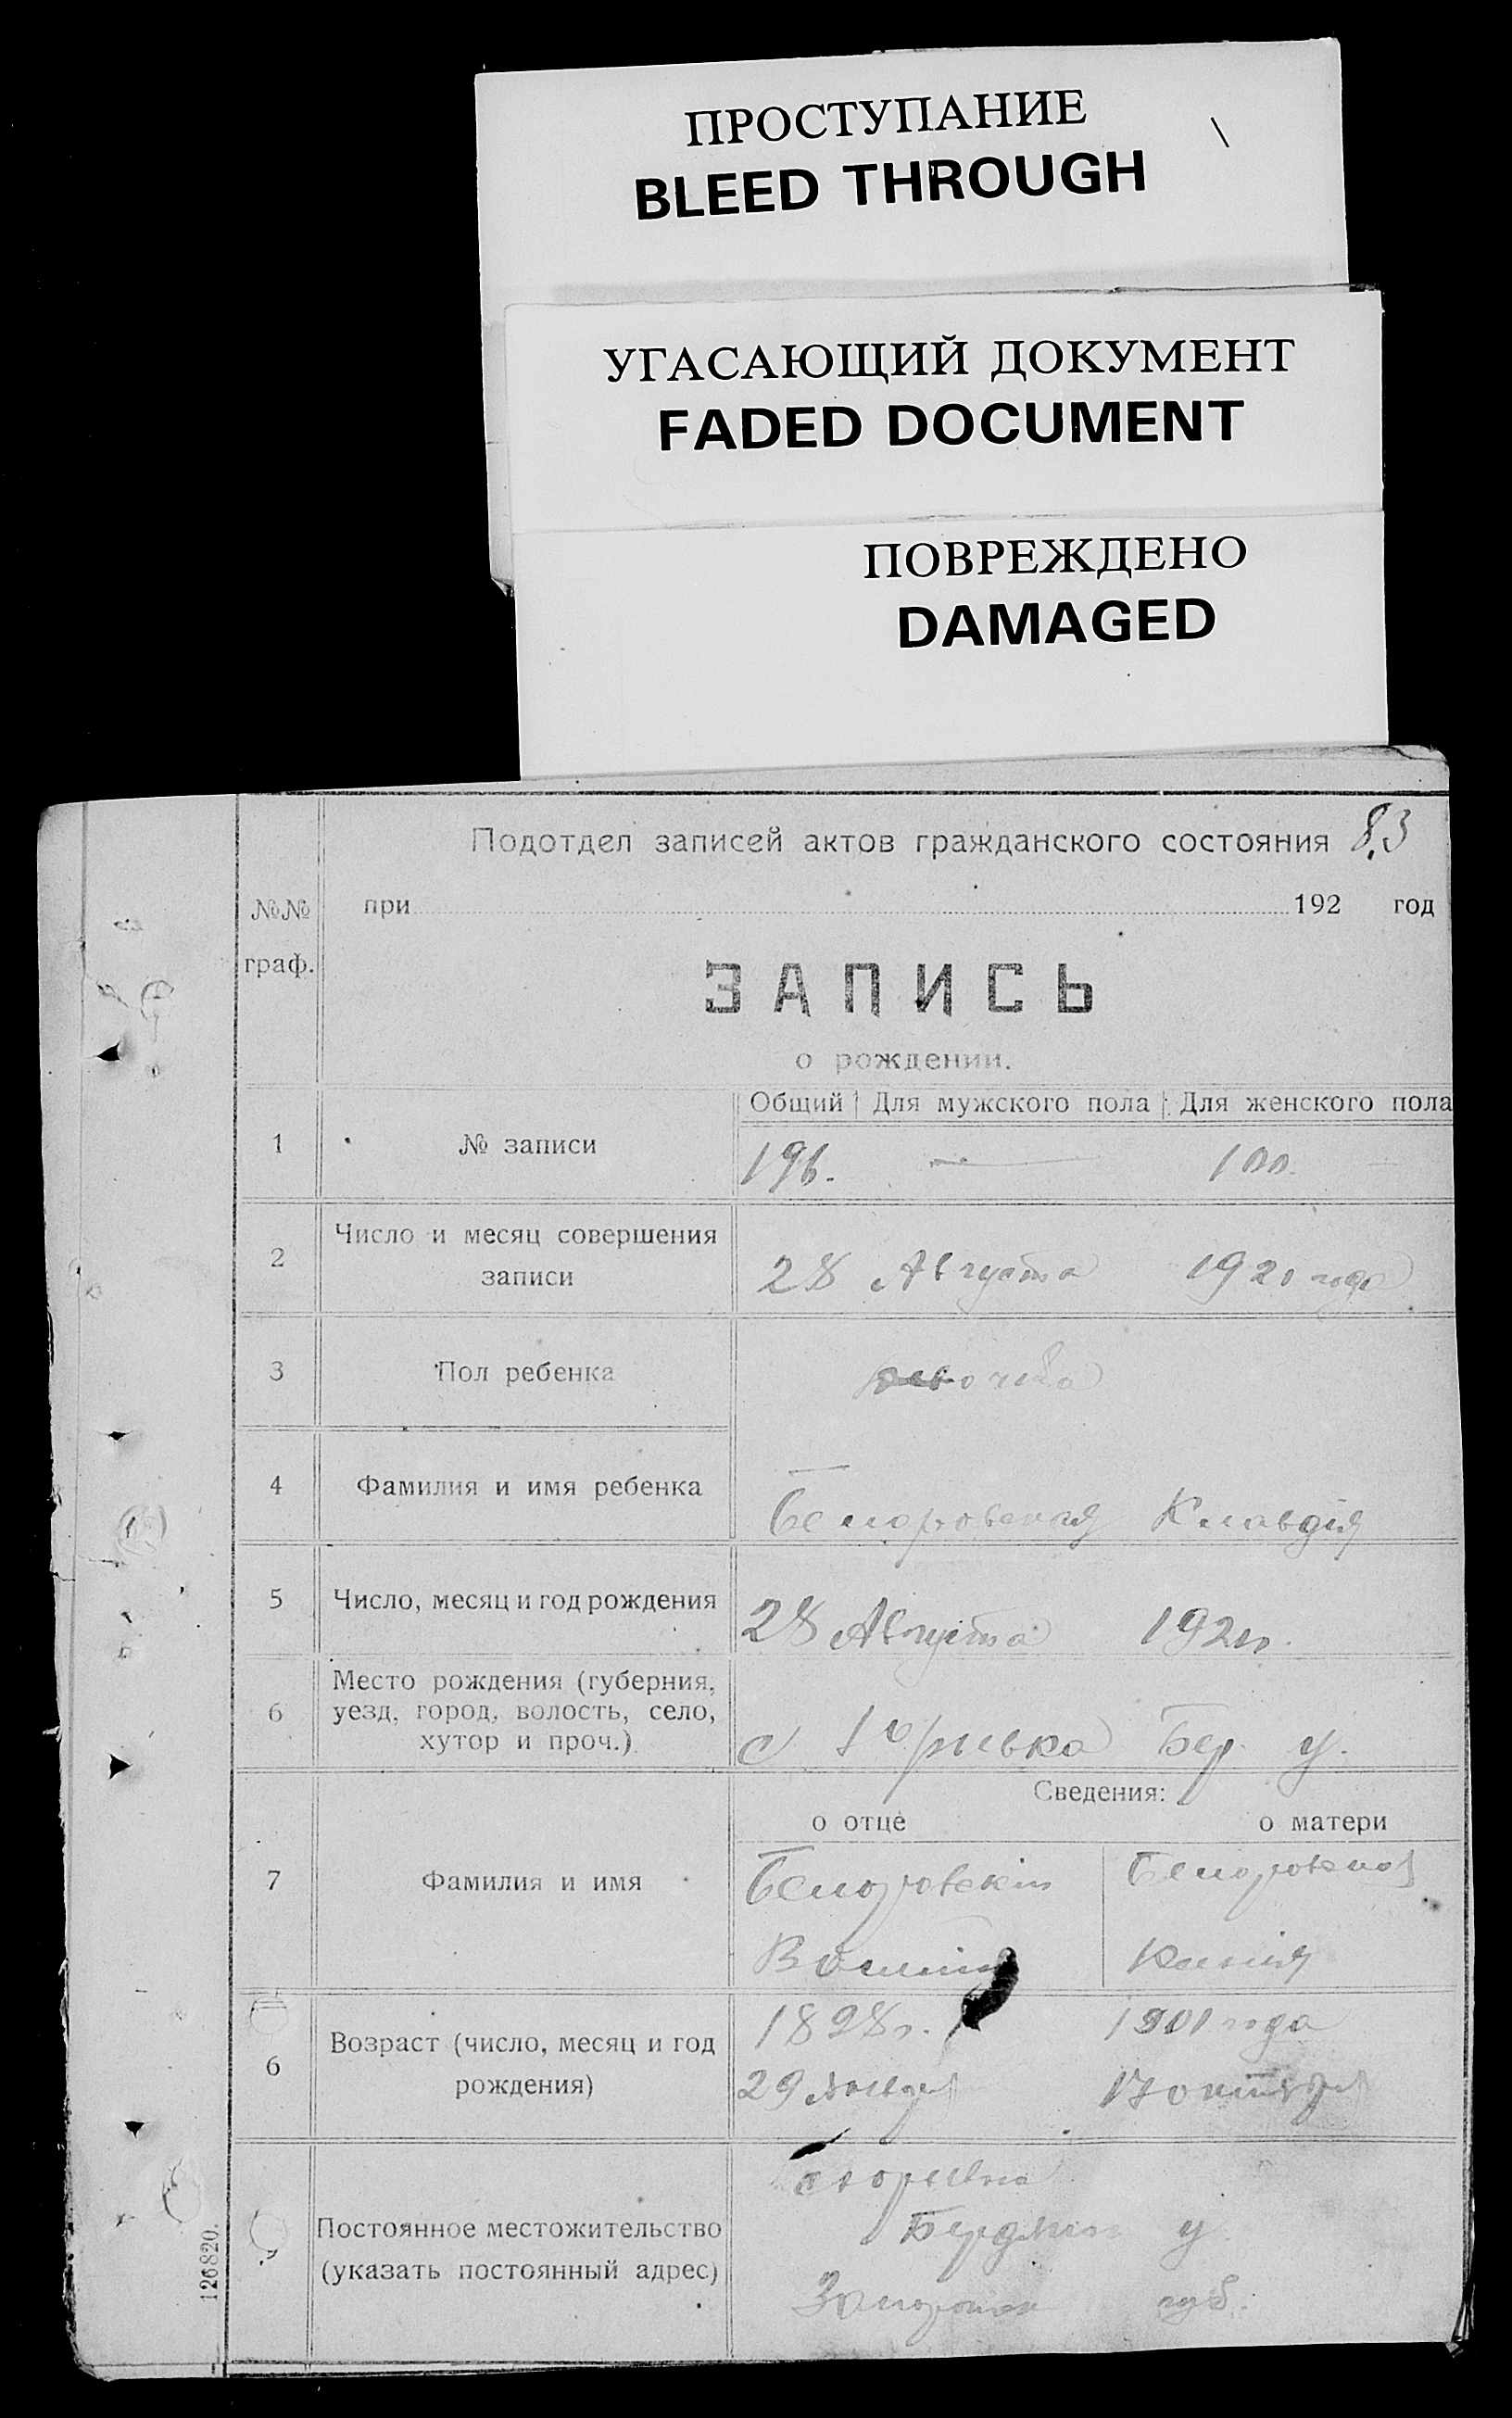 ПРОСТУПАНИЕ
BLEED THROUGH
УГАСАЮЩИЙ ДОКУМЕНТ
FADED DOCUMENT
ПОВРЕЖДЕНО
DAMAGED
Подотдел записей актов гражданского состояния 83
№№ при 192 год
граф.
ЗАПИСЬ
о рождении.
Общий Для мужского пола Для женского пола
1 № записи 196. — 100.
2 Число и месяц совершения
записи 28 Августа 1920 года
3 Пол ребенка девочка
4 Фамилия и имя ребенка Клавдія
5 Число, месяц и год рождения 28 Августа 1920.
Место рождения (губерния,
6 уезд, город, волость, село,
хутор и проч.) с Бер. у.
Сведения:
о отце о матери
7 Фамилия и имя
6 Возраст (число, месяц и год 1898г. 1901 года
рождения) 29 17 октября
Постоянное местожительство у
(указать постоянный адрес) губ.
126820.